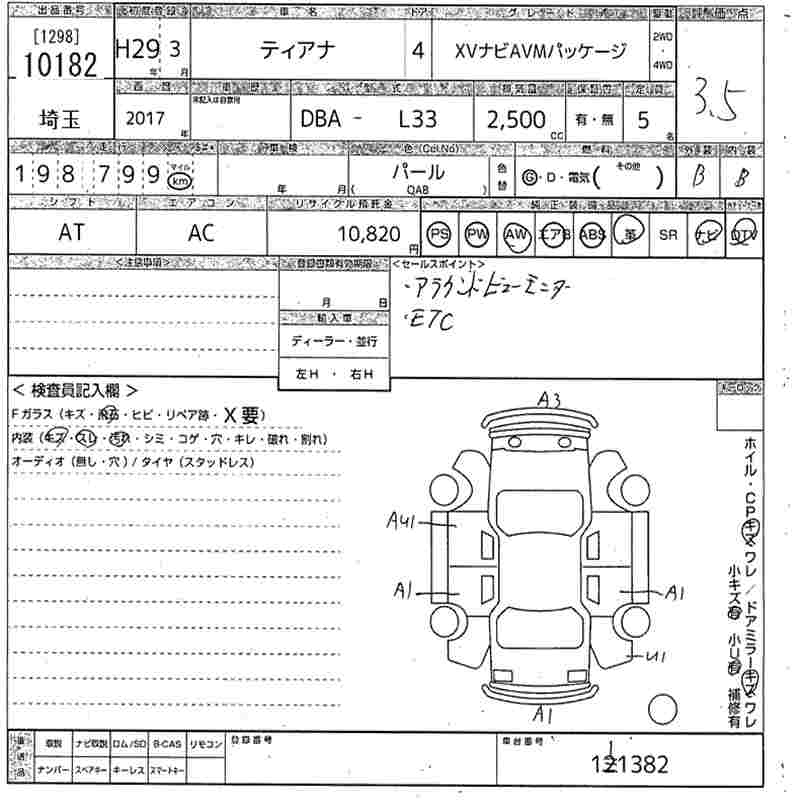 出品番号 初度登録 車名 ドア グレード 駆動 評価点
[1298]
10182
H29年 3月 ティアナ 4 XVナビAVMパッケージ 2WD・4WD 3.5
埼玉
車歴 型式 排気量 保証書 定員
未記入は自家用
2017年 DBA - L33 2,500cc 有・無 5名
走行 車検 色(Col.No) 燃料 外装 内装
198799 マイル km 年 月 パール (QAB) 色替 G・D・電気( その他 ) B B
シフト エアコン リサイクル預託金 純正装備品
AT AC 10,820円 PS PW AW エアB ABS 革 SR ナビ DTV
<注意事項> 登録書類有効期限 <セールスポイント>
月 日
・アラウンドビューモニター
・ETC
輸入車
ディーラー・並行
左H ・ 右H
< 検査員記入欄 >
Fガラス(キズ・飛石・ヒビ・リペア跡・X要)
内装(キズ・スレ・汚れ・シミ・コゲ・穴・キレ・破れ・割れ)
オーディオ(無し・穴)/タイヤ(スタッドレス)
A3
AU1
A1
A1
U1
A1
ホイル・CPキズワレ/ドアミラーキズワレ
小キズ有 小U有 補修有
後送品 取説 ナビ取説 ロム/SD B-CAS リモコン 登録番号 車台番号
ナンバー スペアキー キーレス スマートキー
121382